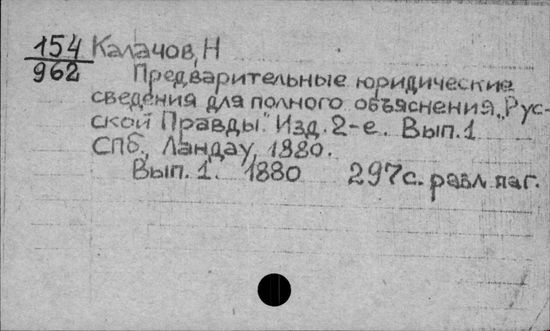 154 Калачов, Н
962
Предварительные юридические
сведения для полного объяснения „Рус-
ской Правды". Изд. 2-е. Вып. 1
СПб., Ландау, 1880.
Вып. 1. 1880 297с. разл. паг.